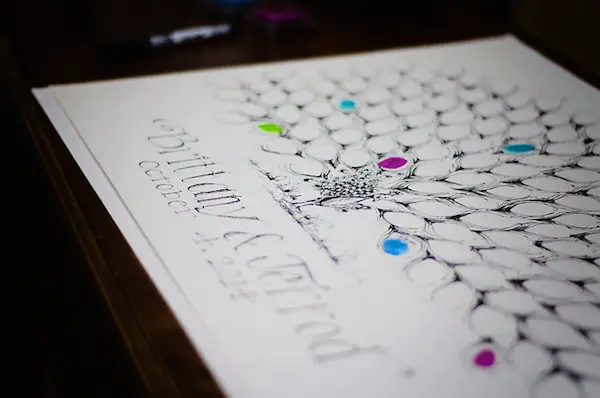 Brittany & Jarrod
October 4, 2014